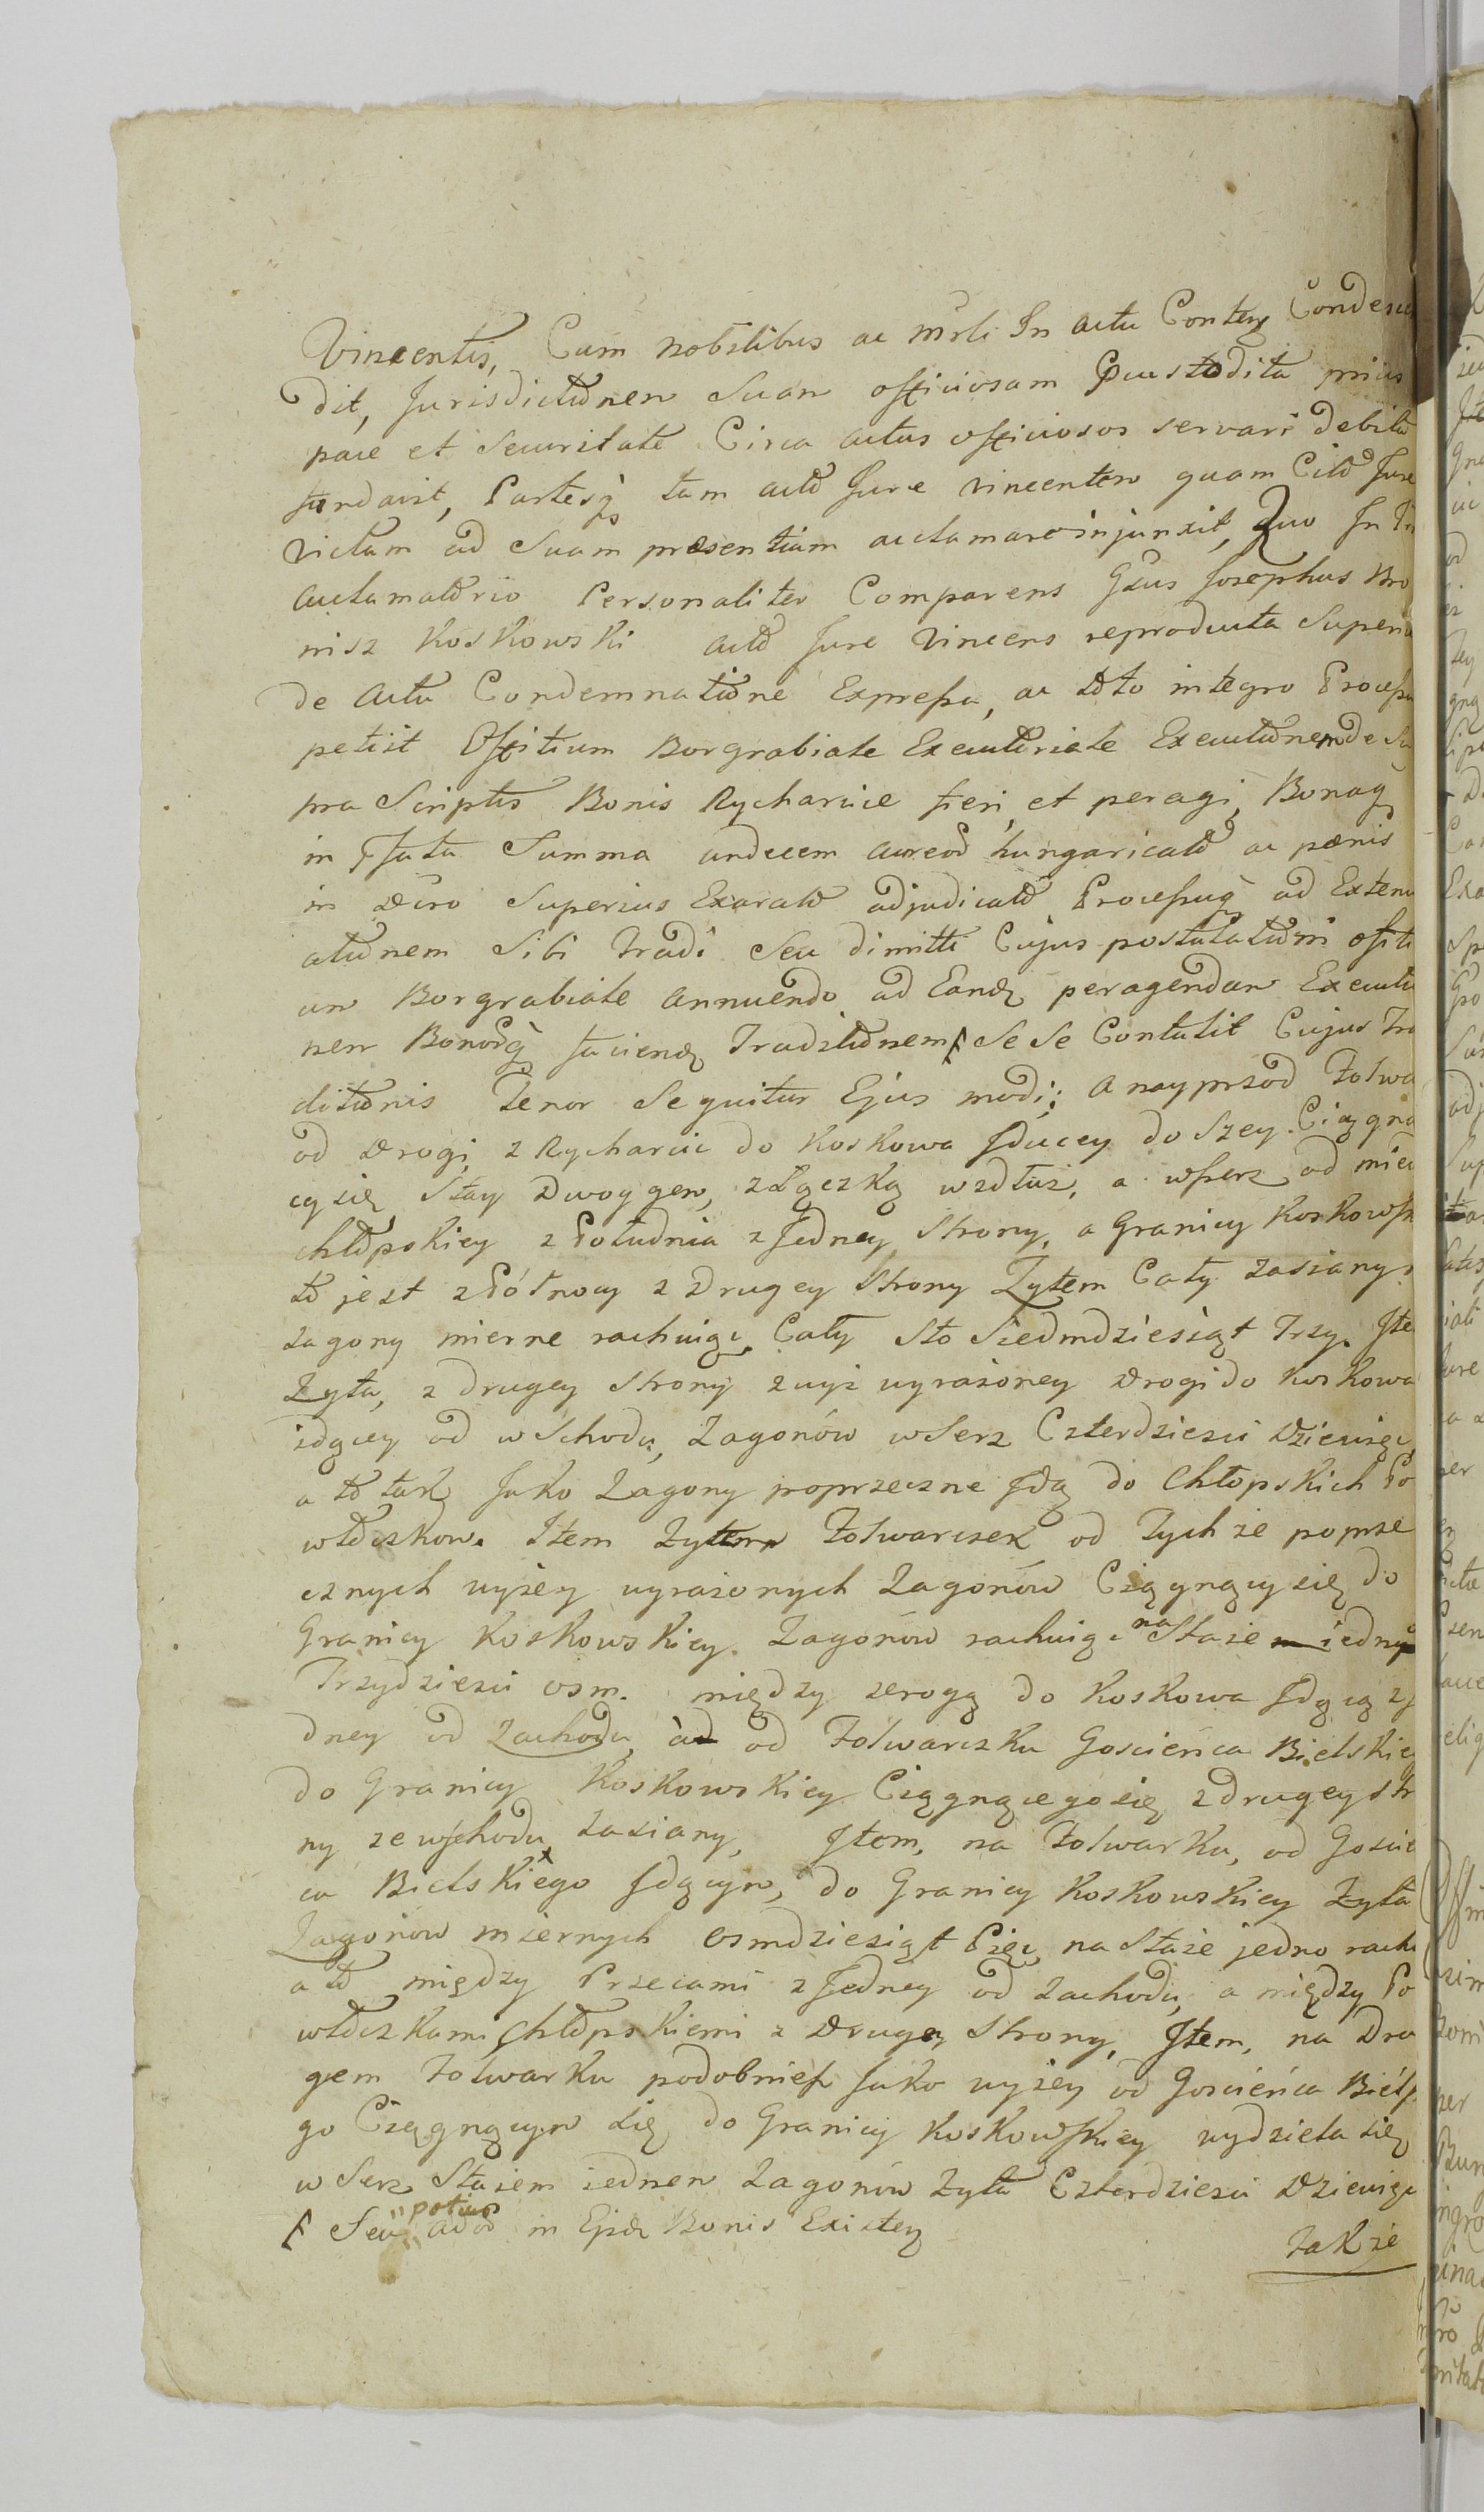 Vincentis, Cum nobilibus ac mrli In actu Conten Condescen
dit, Jurisdictionem Suam officiosam Custodita prius
pace et Securitate Circa actus officiosos servari debita
fundavit, Partesq tam acto Jure vincentem quam Cito Jure
victam ad Suam præsentiam acclamare injunxit, Quo In
acclamatorio Personaliter Comparens Gsus Josephus Bro
nisz Koskowski acto Jure Vincens reproducta Superin
de acta Condemnatione Expressa, ac toto integro Processu
petiit Officium Borgrabiale Executoriale Executionem de Su
pra Scriptis Bonis Rycharcice fieri, et peragi, Bonaq
in Summa undecem aureor hungaricalo ac pænis
in dcro Superius Exarato adjudicato Processuq ad Extenu
ationem Sibi tradi Seu dimitti Cujus postulationi offici
um Borgrabiale annuendo ad Eand peragendam Executio
nem Bonorq faciend Traditionem Se Se Contulit Cujus Tra
ditionis Tenor Sequitur Ejus modi: a nayprzod Folwa
od drogi z Rycharcic do Koskowa Jducey do Szey Ciągną
cysię Stay Dwoygem, złączką wzdłuż, a wszerz od mied
chłopskiey z Południa z Jedney Strony, a Granicy Koskowsk
to jest z Północy z Drugey Strony Zytem Cały zasiany
zagony mierne rachuiąc Cały Sto Siedmdziesiąt Trzy. Ite
Zyta, z drugey Strony zwyż wyrażoney Drogi do Koskowa
idącey od wschodu, Zagonów wSerz Czterdzieści Dziewięc
a to tak Jako Zagony poprzeczne Jdą do Chłopskich Po
włoczkow. Item Zytem Folwarczek od Tychże poprze
cznych wyżey wyrażonych Zagonów Ciągnącysię do
Granicy Koskowskiey. Zagonów rachuiąc na Staie iedny
Trzydzieści osm. między drogą do Koskowa Jdącą z J
dney od Zachodu, ad od Folwarczku Goscieńca Bielskie
do Granicy Koskowskiey Ciągnącegosię z Drugey str
ny ze wschodu zasiany, Jtem, na Folwarku, od Goscie
ca Bielskiego Jdącym, do Granicy Koskowskiey Zyta
Zagonow miernych osmdziesiąt Pięc na Staie jedno rachu
a to między Przecami z Jedney od Zachodu, a między Po
włoczkami Chłopskiemi z Drugey Strony, Jtem, na Dru
gem Folwarku podobnież Jako wyżey od Goscieńca Biels
go Ciągnącym się do Granicy Koskowskiey wydziela się
wSerz Staiem iednem Zagonów Zyta Czterdzieści Dziewięc
Seu potius ad in Ejsd Bonis Existen
Takze